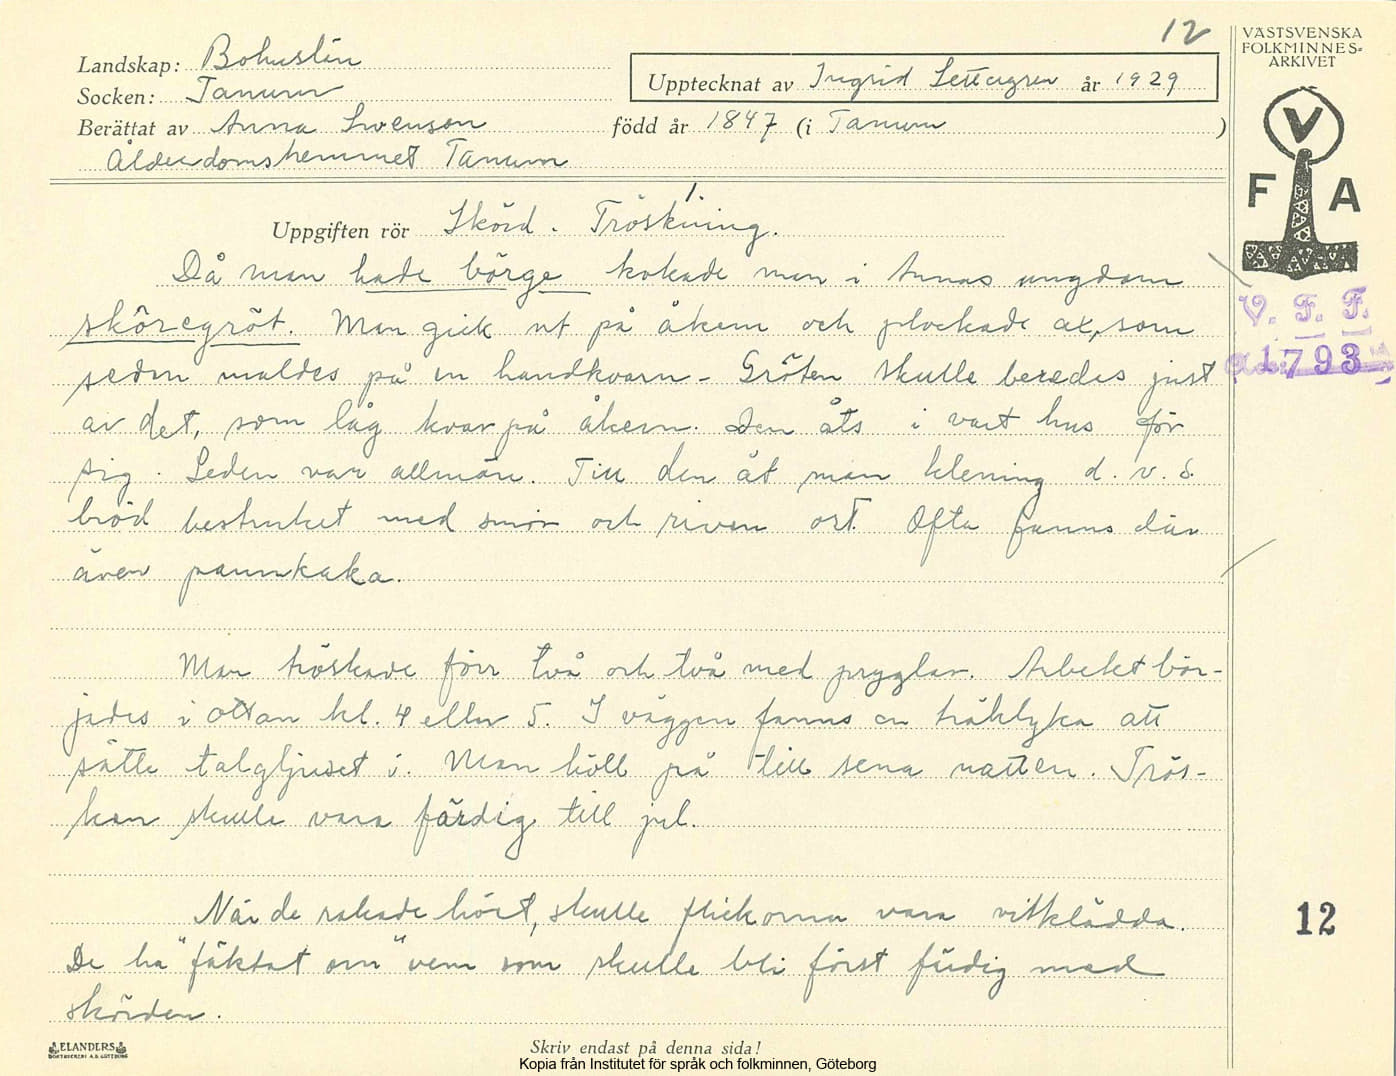 12
Landskap: Bohuslän
Socken: Tanum
Upptecknat av Ingrid år 1929
Berättat av Anna Svenson född år 1847 (i Tanum )
Ålderdomshemmet Tanum
Uppgiften rör Skörd. Tröskning.
Då man hade börge kokade man i Annas ungdom
sköregröt. Man gick ut på åkern och plockade ax, som
sedan maldes på en handkvarn. Gröten skulle beredas just
av det, som låg kvar på åkern. Den åts i vart hus för
sig. Seden var allmän. Till den åt man klening d. v. s.
bröd bestruket med smör och riven ost. Ofta fanns där
även pannkaka.
Man tröskade förr två och två med pryglar. Arbetet bör-
jades i ottan kl. 4 eller 5. I väggen fanns en träklyka att
sätta talgljuset i. Man höll på till sena natten. Trös-
kan skulle vara färdig till jul.
När de rakade hört, skulle flickorna vara vitklädda.
De ha "fäktat om" vem som skulle bli först färdig med
skörden.
VÄSTSVENSKA
FOLKMINNES=
ARKIVET
V
F A
V. F. F.
1793
12
ELANDERS
BOKTRYCKERI A.B. GÖTEBORG
Skriv endast på denna sida!
Kopia från Institutet för språk och folkminnen, Göteborg